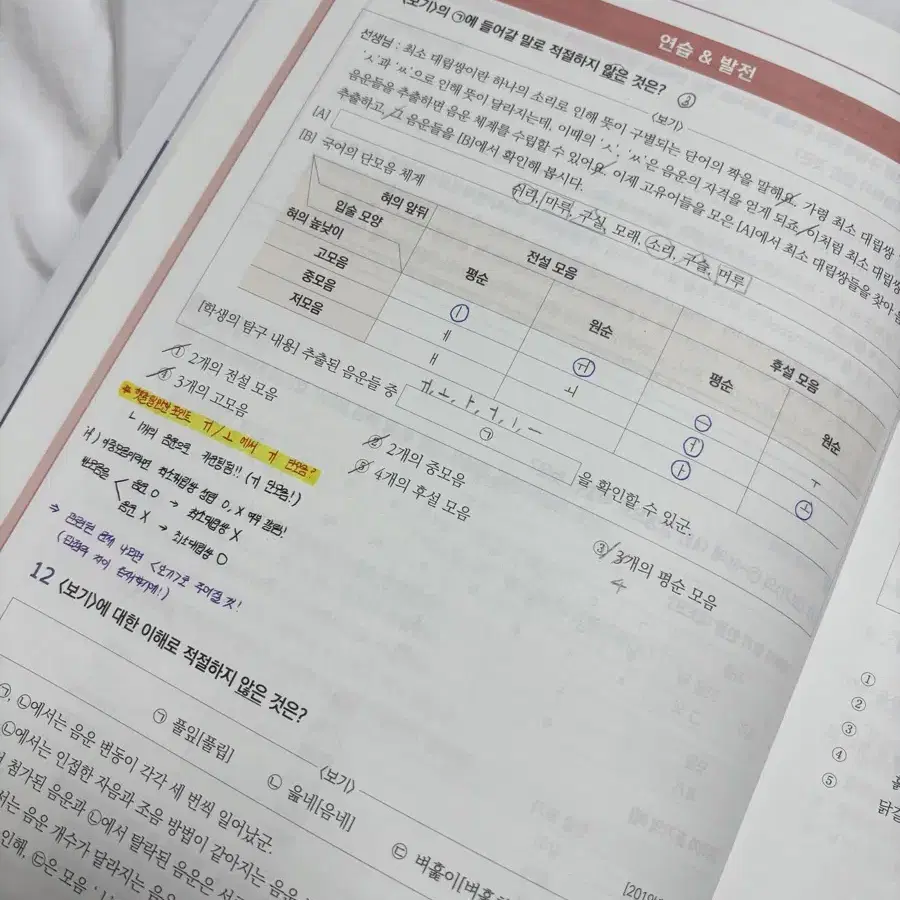 연습 & 발전
<보기>의 ㉠에 들어갈 말로 적절하지 않은 것은? ③
<보기>
선생님 : 최소 대립쌍이란 하나의 소리로 인해 뜻이 구별되는 단어의 짝을 말해요. 가령 최소 대립쌍
'ㅅ'과 'ㅆ'으로 인해 뜻이 달라지는데, 이때의 'ㅅ', 'ㅆ'은 음운의 자격을 얻게 되죠. 이처럼 최소 대립쌍
음운들을 추출하면 음운 체계를 수립할 수 있어요. 이제 고유어들을 모은 [A]에서 최소 대립쌍들을 찾아 음
추출하고, 그 음운들을 [B]에서 확인해 봅시다.
[A] 쉬리, 마루, 구실, 모래, 소리, 구슬, 머루
[B] 국어의 단모음 체계
혀의 앞뒤 전설 모음 후설 모음
입술 모양 평순 원순 평순 원순
혀의 높낮이
고모음 ㅣ ㅟ ㅡ ㅜ
중모음 ㅔ ㅚ ㅓ ㅗ
저모음 ㅐ ㅏ
[학생의 탐구 내용] 추출된 음운들 중 ㅟ, ㅗ, ㅏ, ㅓ, ㅣ, ㅡ 을 확인할 수 있군.
㉠
① 2개의 전설 모음
② 2개의 중모음
③ 3개의 평순 모음
4
④ 3개의 고모음
⑤ 4개의 후설 모음
ㅟ/ㅗ 에서 ㅟ 단모음?
1개의 음운으로 카운팅됨!! (ㅟ 단모음!)
음운 O → 최소대립쌍 X
음운 X → 최소대립쌍 O
⇒ 관련된 문제 나오면 <보기>로 주어질 것!
12 <보기>에 대한 이해로 적절하지 않은 것은?
<보기>
㉠ 풀잎[풀립]
㉡ 읊네[음네]
㉢ 벼훑이[벼훌
㉡에서는 음운 변동이 각각 세 번씩 일어났군.
㉡에서는 인접한 자음과 조음 방법이 같아지는 음운
첨가된 음운과 ㉡에서 탈락된 음운은 서
서는 음운 개수가 달라지는 음운
인해, ㉢은 모음
[2019
①
②
③
④
⑤
닭길